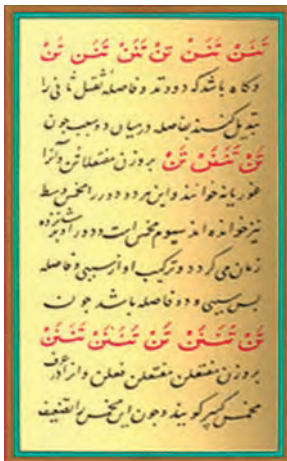 تَنَنْ تَنَنْ تَنْ تَنَنْ تَنَنْ تَنْ
و گاه باشد که دو وتد و فاصله ثقیل ثانی را
تبدیل کنند بفاصله در میان دو سبب چون
تَنْ تَنَنَنْ تَنْ بر وزن مفتعلاتن و آنرا
خوانند و این هر دو دور را مخمس وسط
نیز خوانده اند سیوم مخمس است و دور او بر شانزده
زمان می گردد و ترکیب او از سببی و فاصله
پس سببی و دو فاصله باشد چون
تَنْ تَنَنَنْ تَنْ تَنَنَنْ تَنَنَنْ
بر وزن مفتعلن مفتعلن فعلن و از ادوار
مخمس کبیر گویند و چون این مخمس را تضعیف